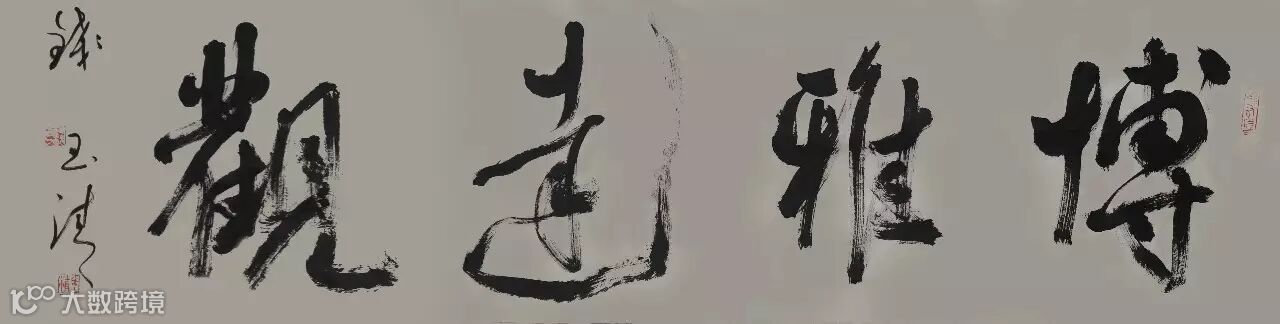 博雅達觀
錢玉清
大数跨境